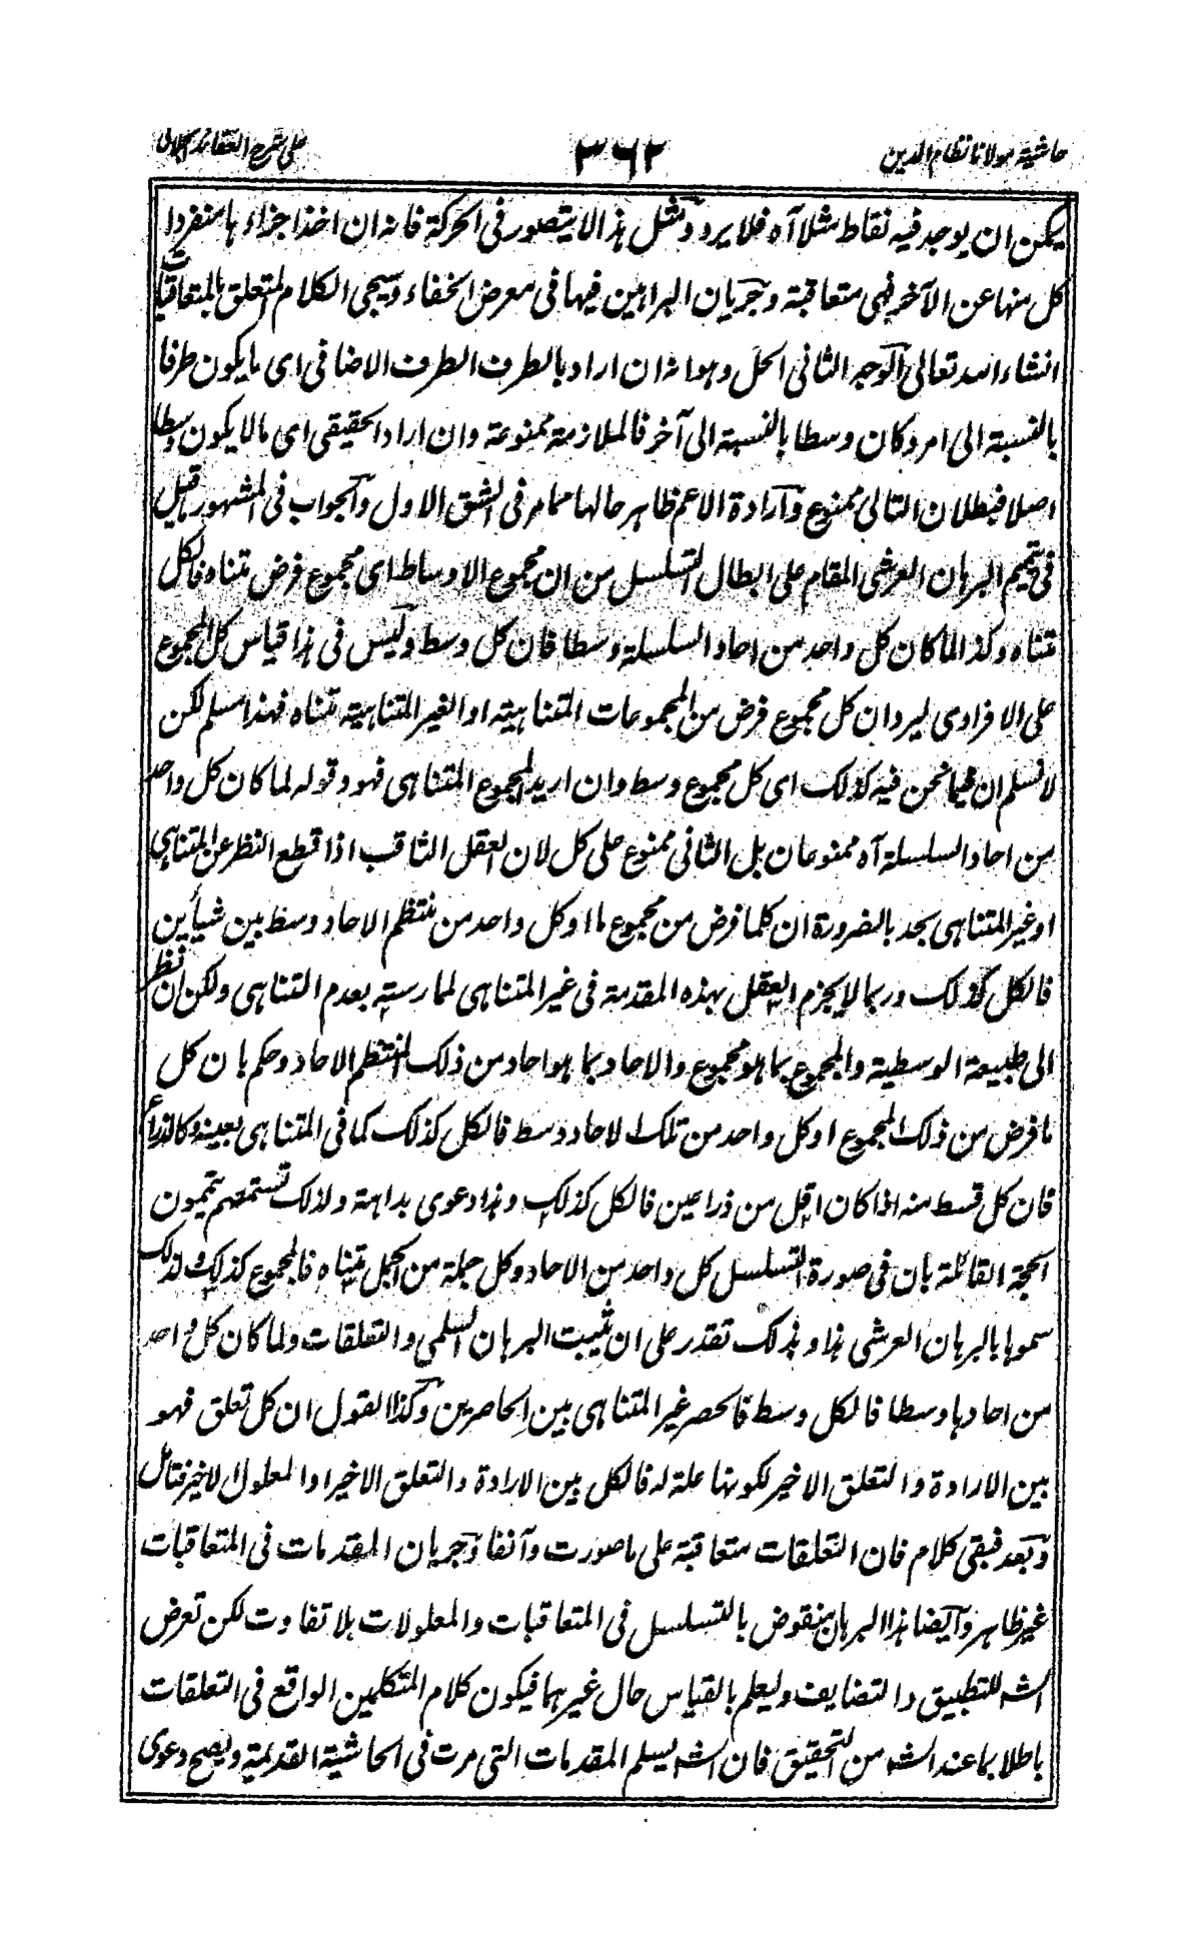 حاشية مولانا نظام الدين
٣٦٢
على شرح العقائد الجلالى
يمكن ان يوجد فيه نقاط مثلا آه فلا يرد ومثل هذا لا يتصور فى الحركة فانه ان اخذ اجزاء ها منفردا
كل منها عن الآخر فهى متعاقبة وجريان البراهين فيها فى معرض الخفاء وسيجى الكلام المتعلق بالمتعاقبات
انشاء الله تعالى الوجه الثانى الحل وهو انه ان اراد بالطرف الطرف الاضافى اى ما يكون طرفا
بالنسبة الى امر وكان وسطا بالنسبة الى آخر فالملازمة ممنوعة وان اراد الحقيقى اى ما لا يكون وسطا
اصلا فبطلان التالى ممنوع وارادة الاعم ظاهر حالها مما مر فى الشق الاول والجواب فى المشهور ما قيل
فى تتميم البرهان العرشى المقام على ابطال التسلسل من ان مجموع الاوساط اى مجموع فرض متناه فالكل
متناه وكذا لما كان كل واحد من احاد السلسلة وسطا فان كل وسط وليس فى هذا قياس كل المجموع
على الافرادى ليرد ان كل مجموع فرض من المجموعات المتناهية او الغير المتناهية متناه فهذا مسلم لكن
لا نسلم ان فيما نحن فيه كذلك اى كل مجموع وسط وان اريد المجموع المتناهى فهو وقوله لما كان كل واحد
من احاد السلسلة آه ممنوعان بل الثانى ممنوع على كل لان العقل الثاقب اذا قطع النظر عن المتناهى
او غير المتناهى يجد بالضرورة ان كلما فرض من مجموع ما او كل واحد من منتظم الاحاد وسط بين شيأين
فالكل كذلك وربما لا يجزم العقل بهذه المقدمة فى غير المتناهى لممارسته بعدم التناهى ولكن ان نظر
الى طبيعة الوسطية والمجموع بما هو مجموع والاحاد بما هو احاد من ذلك المنتظم الاحاد وحكم بان كل
ما فرض من ذلك المجموع او كل واحد من تلك الاحاد وسط فالكل كذلك كما فى المتناهى بعينه وكالذراع
فان كل قسط منه اذا كان اقل من ذراعين فالكل كذلك وهذا دعوى بداهة ولذلك تستمعهم يتممون
الحجة القائلة بأن فى صورة التسلسل كل واحد من الاحاد وكل جملة من الجمل متناه فالمجموع كذلك ولذلك
سموها بالبرهان العرشى هذا وبذلك تقدر على ان تثبت البرهان السلمى والتعلقات ولما كان كل واحد
من احادها وسطا فالكل وسط فانحصر غير المتناهى بين الحاصرين وكذا القول ان كل تعلق فهو
بين الارادة والتعلق الاخير لكونها علة له فالكل بين الارادة والتعلق الاخير او المعلول الاخير فتأمل
وبعد فبقى كلام فان التعلقات متعاقبة على ما صورت وآنفا وجريان المقدمات فى المتعاقبات
غير ظاهر وايضا هذا البرهان منقوض بالتسلسل فى المتعاقبات والمعلولات بلا تفاوت لكن تعرض
الشه للتطبيق والتضايف وليعلم بالقياس حال غيرهما فيكون كلام المتكلمين الواقع فى التعلقات
باطلا بما عند الشه من التحقيق فان الشه يسلم المقدمات التى مرت فى الحاشية القديمة ويصح دعوى